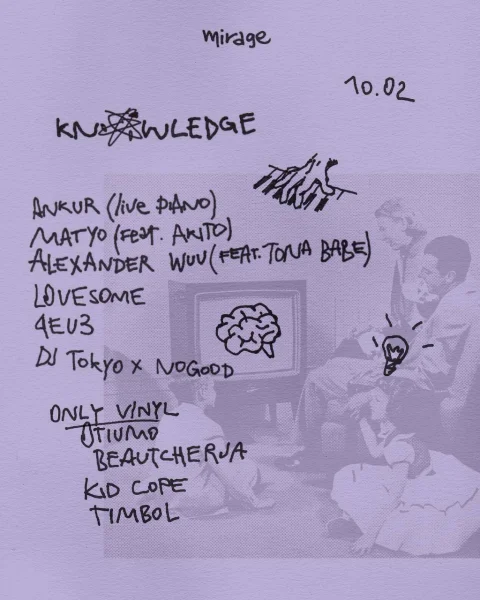 mirage
10.02
KNOWLEDGE
ANKUR (live PIANO)
MATYO (feat. AKITO)
ALEXANDER WUU (FEAT. TONA BABE)
LOVESOME
4EU3
DJ Tokyo x NOGOOD
ONLY VINYL
OTIUMO
BEAUTCHERJA
KID COPE
TIMBOL